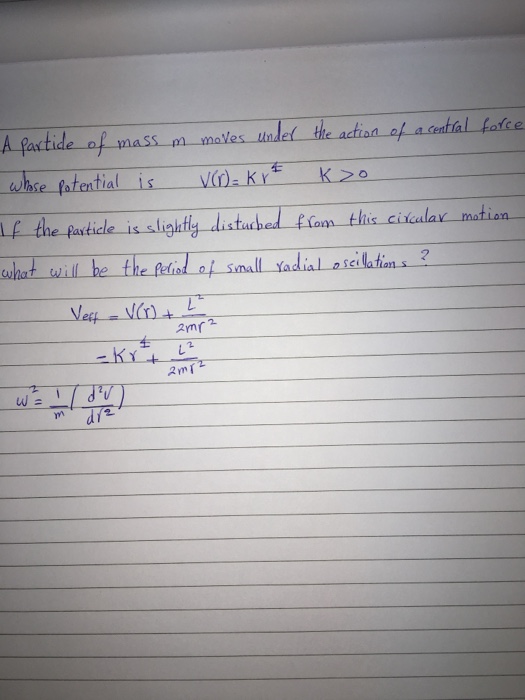 A particle of mass m moves under the action of a central force
whose potential is V(r) = K r⁴ K > 0
If the particle is slightly disturbed from this circular motion
what will be the period of small radial oscillations ?
Veff = V(r) + L² / 2mr²
= K r⁴ + L² / 2mr²
ω² = 1/m ( d²V / dr² )